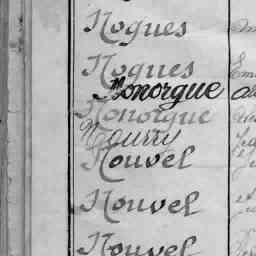 Nogues
Nogues
Honorgue
Nonorgue
Nourry
Nouvel
Nouvel
Nouvel